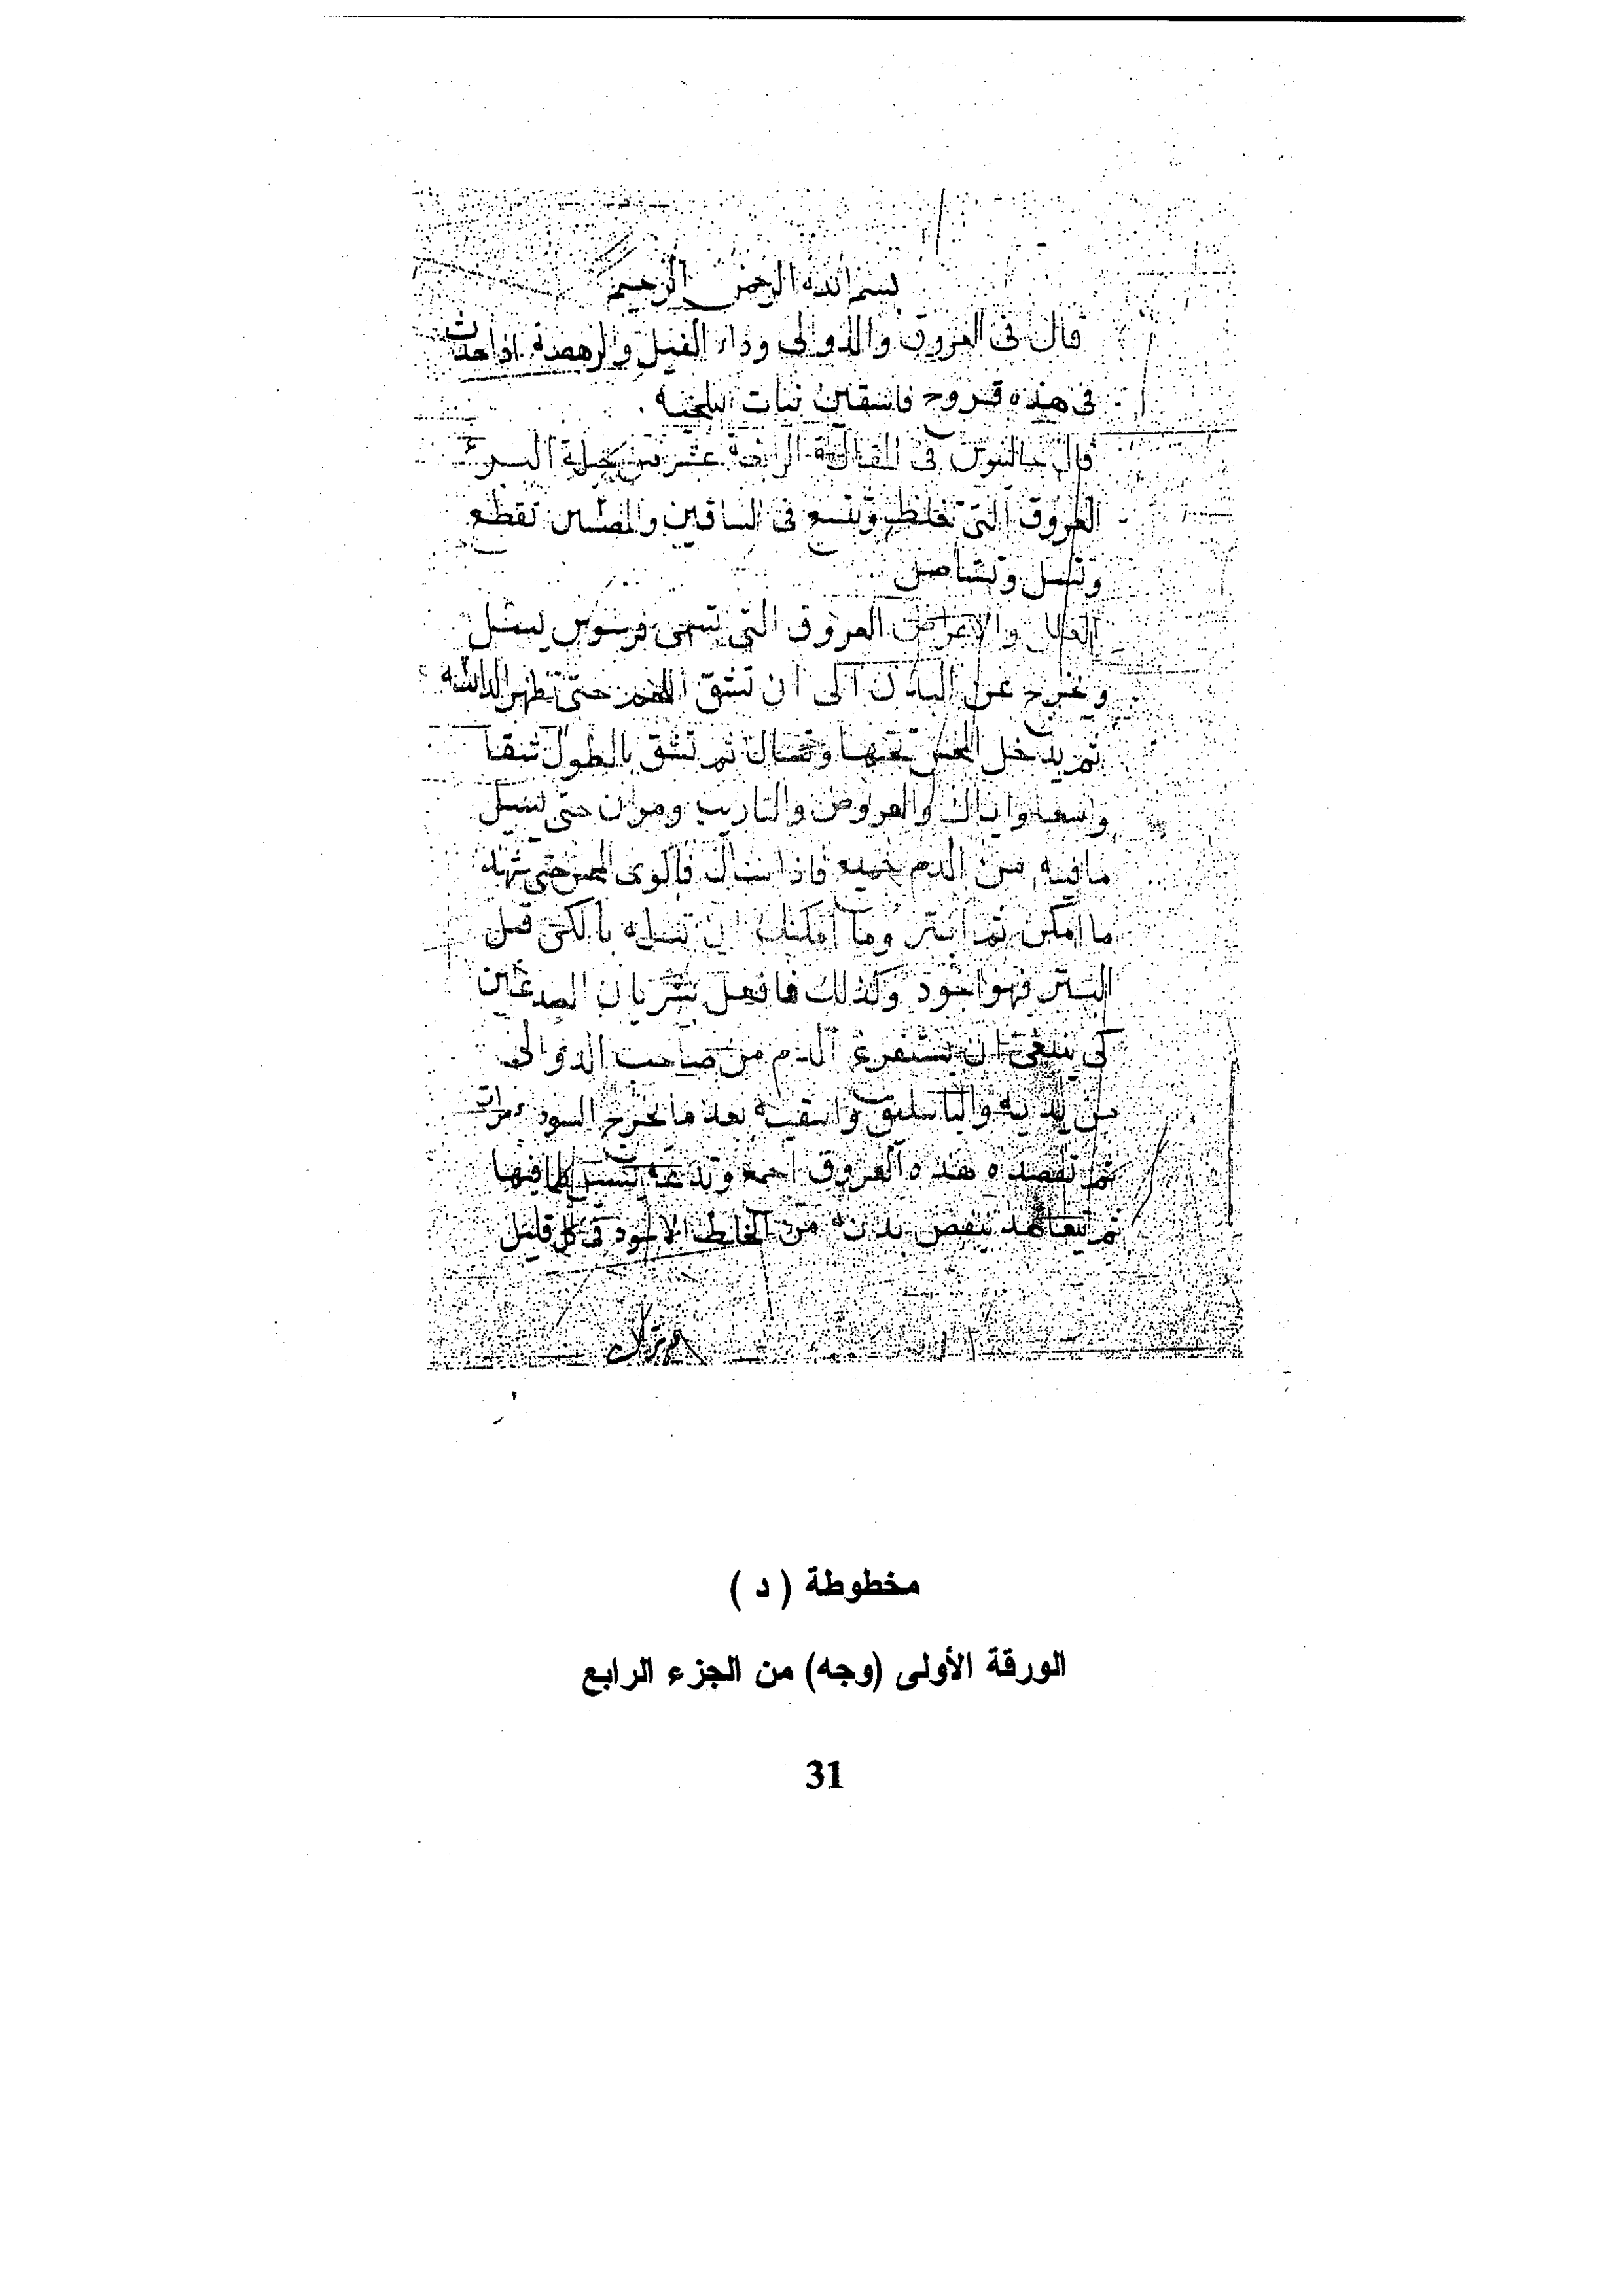 بسم الله الرحمن الرحيم
قال في العروق والدوالي وداء الفيل والرهصة اذا حدث
في هذه قروح فاسقين نبات اللحية
قال جالينوس في المقالة الرابعة عشر من حيلة البرء
العروق التي تغلظ وتتسع في الساقين تقطع
وتسل وتستأصل
العلل والاعراض العروق التي تسمى
عن البدن الى ان تشق حتى تظهر
ثم يدخل تحتها وتشال ثم تشق بالطول شقا
واسعا واياك والعروض والتاريب حتى يسيل
ما فيه من الدم جميعه فاذا سال حتى
ما امكن ثم ابتر وما امكنك ان تسله بالكي قبل
البتر فهو اجود وكذلك فافعل بشريان الصدغين
كي ينبغي ان يستفرغ الدم من صاحب الدوالي
من يديه والباسليق واسقيه بعد ما يخرج السوداء مرات
ثم تفصده هذه العروق اجمع وتدعه يسيل كلما فيها
ثم تتعاهد بنفض بدنه من الخلط الاسود في كل قليل
مخطوطة ( د )
الورقة الأولى (وجه) من الجزء الرابع
31